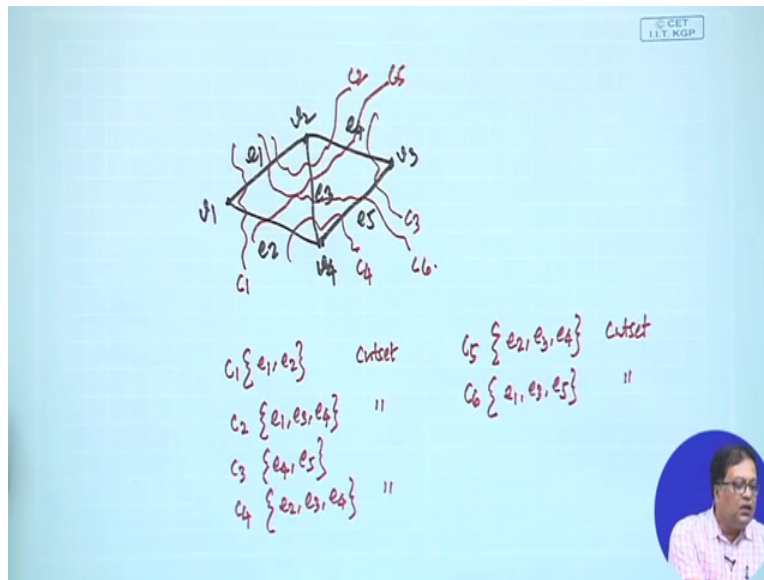 © CET
I.I.T. KGP
C2 C5
v2 e4
e1 v3
e3
v1 e5 C3
e2 v4 C4 C6.
C1
C1 {e1, e2} Cutset
C2 {e1, e3, e4} "
C3 {e4, e5}
C4 {e2, e3, e4} "
C5 {e2, e3, e4} Cutset
C6 {e1, e3, e5} "